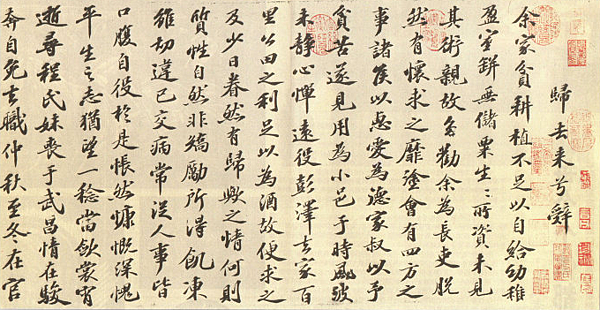 歸去來兮辭
余家貧耕植不足以自給幼稚
盈室缾無儲粟生〻所資未見
其術親故多勸余為長吏脫
然有懷求之靡塗會有四方之
事諸侯以惠愛為德家叔以予
貧苦遂見用為小邑于時風波
未靜心憚遠役彭澤去家百
里公田之利足以為酒故便求之
及少日眷然有歸歟之情何則
質性自然非矯勵所得飢凍
雖切違己交病常從人事皆
口腹自役於是悵然慷慨深愧
平生之志猶望一稔當斂裳宵
逝尋程氏妹喪于武昌情在駿
奔自免去職仲秋至冬在官